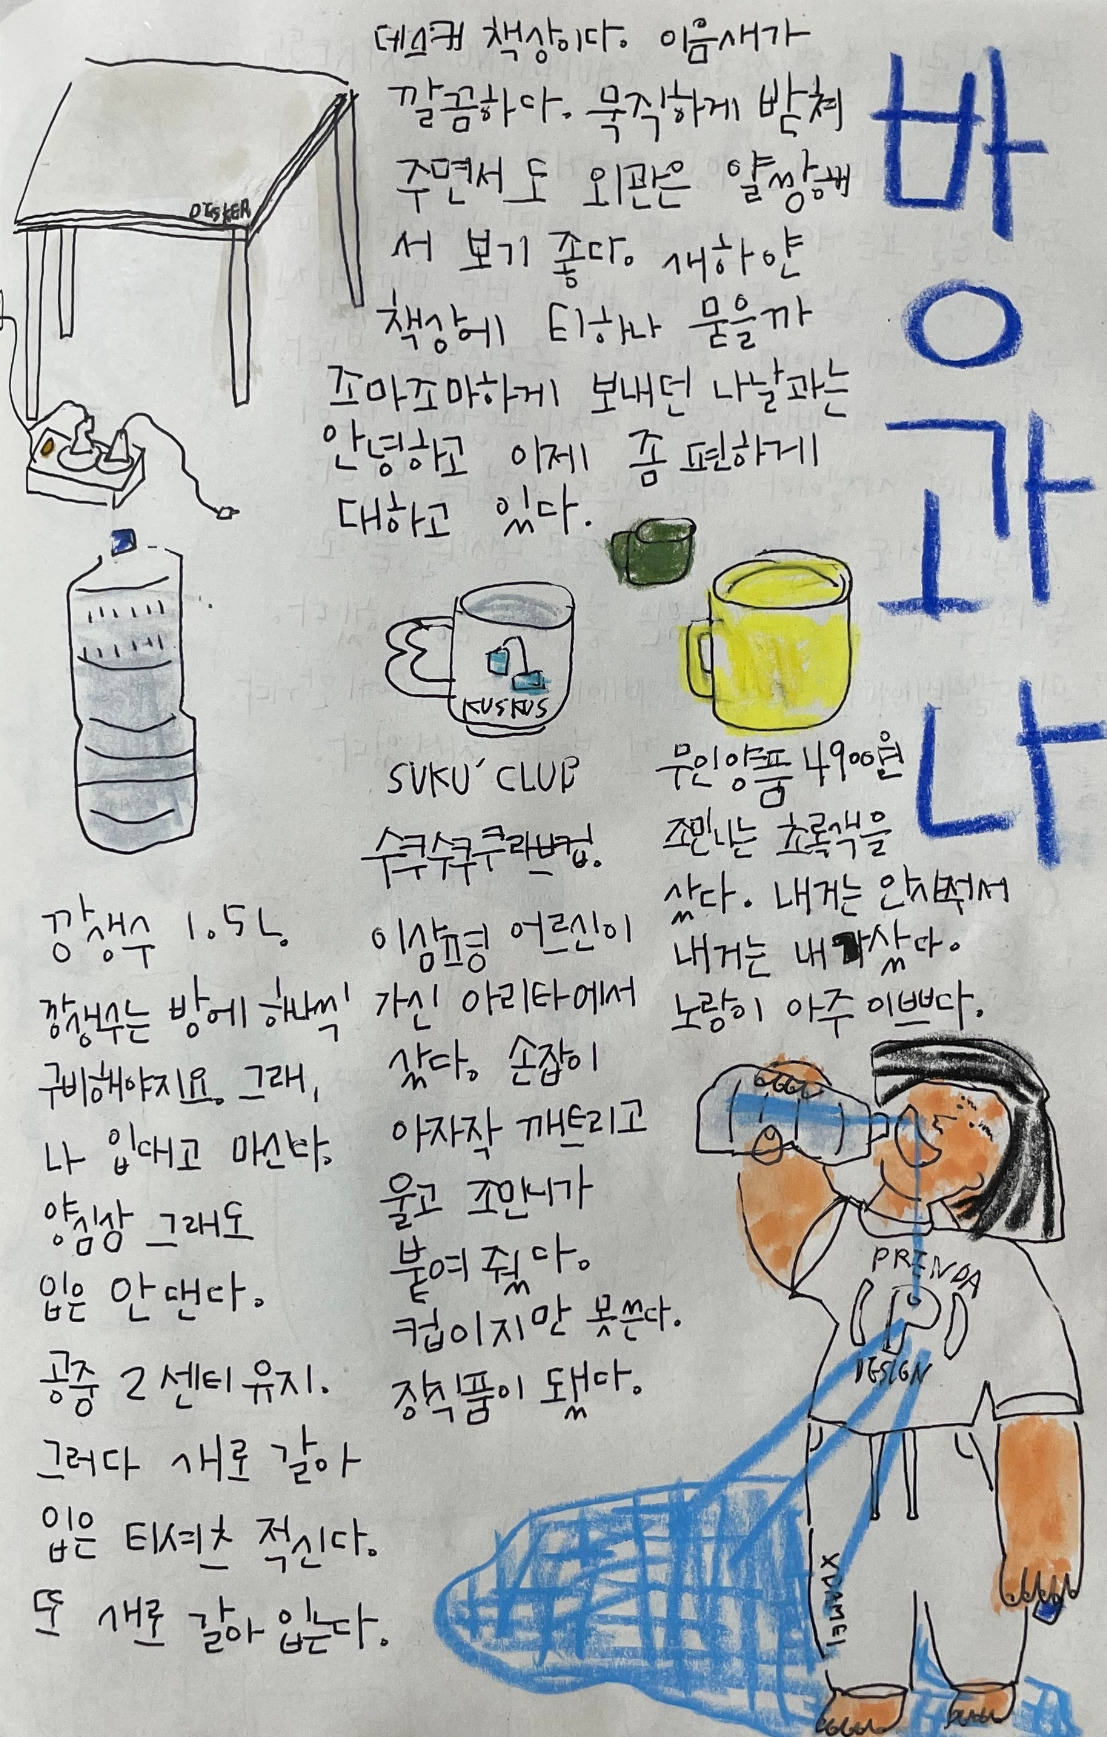 바
오
가
나
데스커 책상이다. 이음새가
깔끔하다. 묵직하게 받쳐
주면서도 외관은 얄쌍해
서 보기 좋다. 새하얀
책상에 티하나 묻을까
조마조마하게 보내던 나날과는
안녕하고 이제 좀 편하게
대하고 있다.
DESKER
KUSKUS
SUKU' CLUB
수쿠수쿠쿠라브컵.
이삼평 어르신이
가신 아리타에서
샀다. 손잡이
아자작 깨트리고
울고 조민니가
붙여 줬다.
컵이지만 못쓴다.
장식품이 됐다.
무인양품 4900원
조민니는 초록색을
샀다. 내거는 안사줘서
내거는 내가 샀다.
노랑이 아주 이쁘다.
깡생수 1.5L.
깡생수는 방에 하나씩
구비해야지요. 그래,
나 입대고 마신다.
양심상 그래도
입은 안 댄다.
공중 2센티 유지.
그러다 새로 갈아
입은 티셔츠 적신다.
또 새로 갈아 입는다.
PRENDA
P
DESIGN